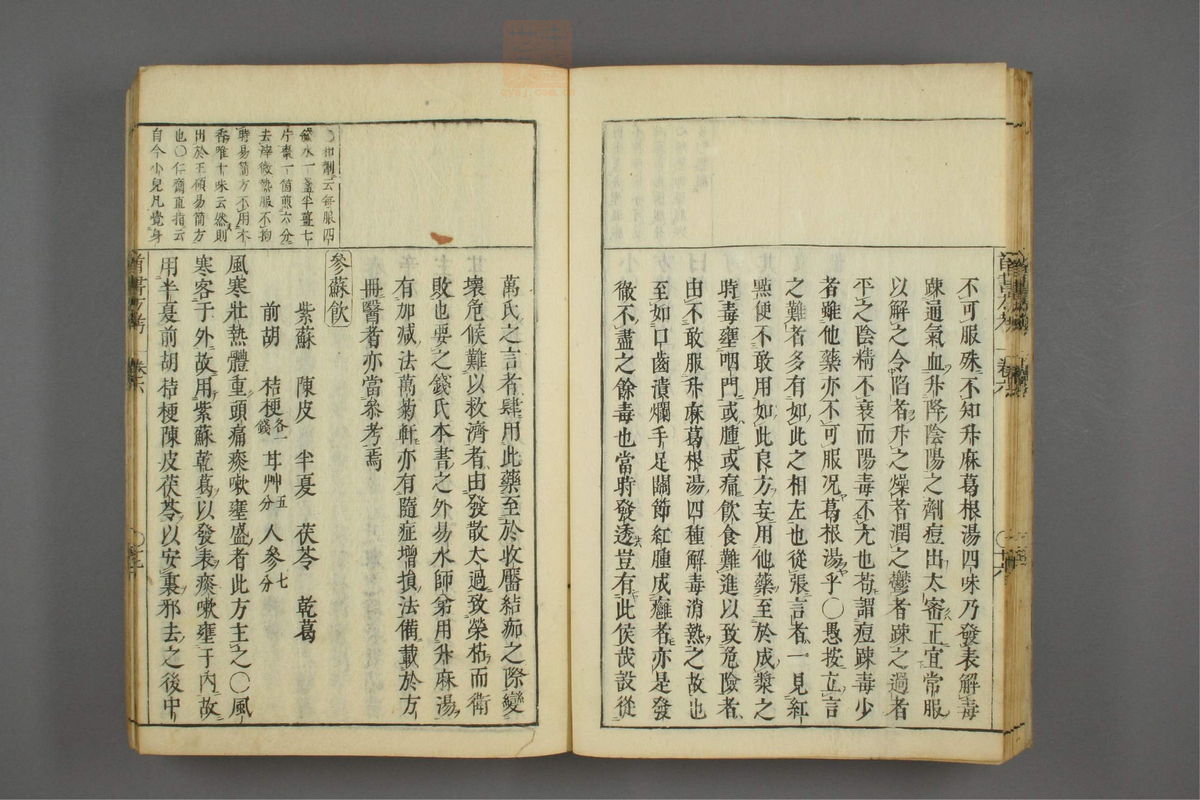 不可服殊不知升麻葛根湯四味乃發表解毒
疎通氣血升降陰陽之劑痘出太審正宜常服
以解之令陷者升之燥者潤之鬱者疎之過者
平之陰精不衰而陽毒不亢也苟謂痘踈毒少
者雖他藥亦不可服况葛根湯乎〇愚按立言
之難者多有如此之相左也從張言者一見紅
點便不敢用如此良方妄用他藥至於成漿之
時毒壅咽門或腫或瘡飲食難進以致危險者
由不敢服升麻葛根湯四種解毒消熱之故也
至如口齒潰爛手足關節紅腫成癰者亦是發
徹不盡之餘毒也當時發透豈有此侯哉設從
萬氏之言者肆用此藥至於收靨結痂之際變
壞危候難以救濟者由發散太過致榮枯而衛
敗也要之錢氏本書之外易水師弟用升麻湯
有加减法萬菊軒亦有隨症增損法備載於方
冊醫者亦當參考焉
參蘇飲
紫蘇 陳皮 半夏 茯苓 乾葛
前胡 桔梗各一錢 甘艸五分 人參七分
風寒壯熱體重頭痛痰嗽壅盛者此方主之〇風
寒客于外故用紫蘇乾葛以發表痰嗽壅于内故
用半夏前胡桔梗陳皮茯苓以安裏邪去之後中
〇和劑云每服四
錢水一盞半薑七
片棗一箇煎六分
去滓微熱服不拘
時易簡方不用木
香唯十味云然則
出於王碩易簡方
也〇仁齋直指云
自今小兒凡覺身
醫書方考 卷六